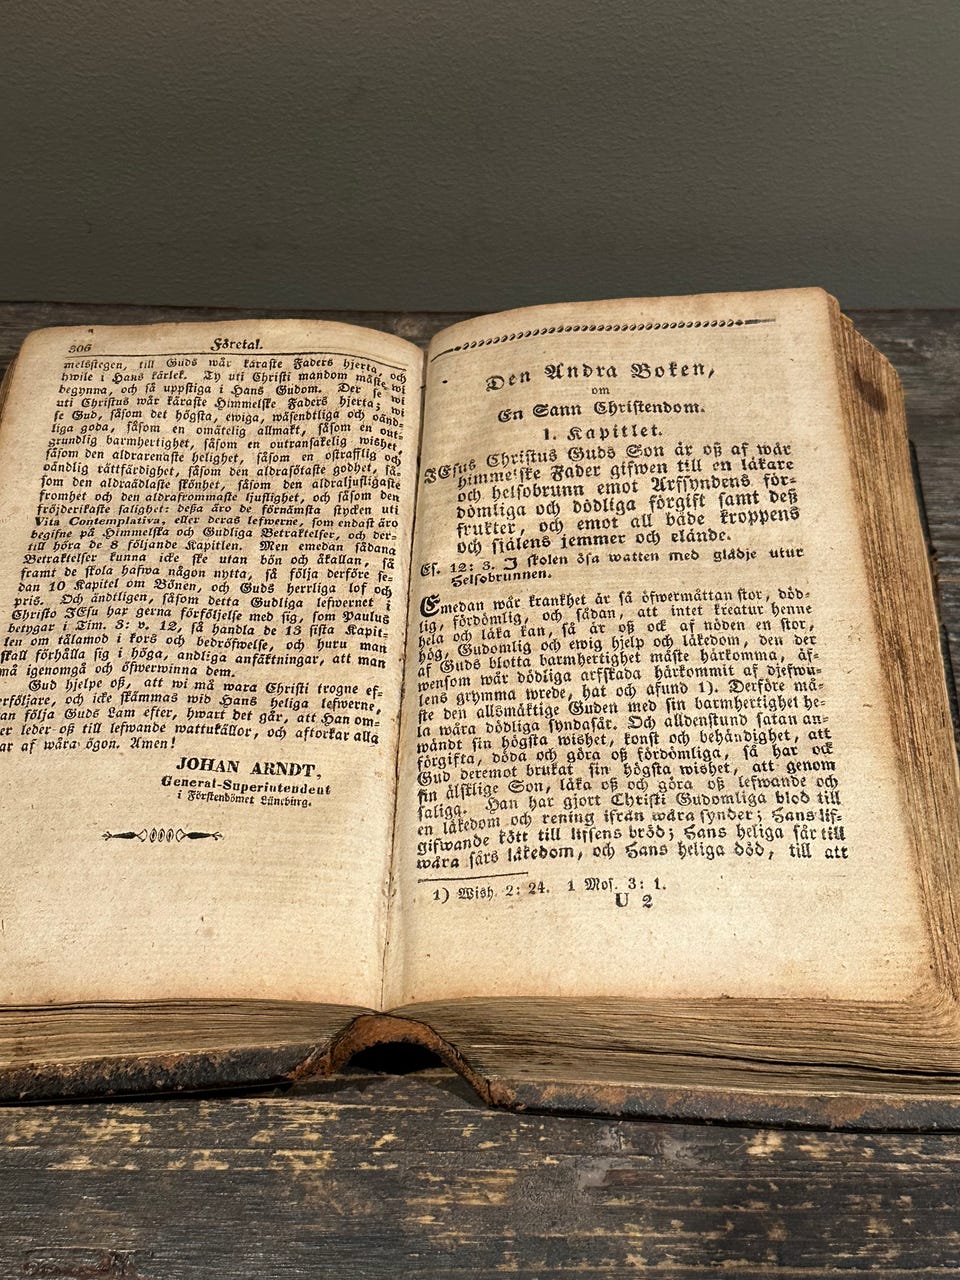 306
Företal.
melsstegen, till Guds wår käraste Faders hjerta, och
hwile i Hans kärlek. Ty uti Christi mandom måste wi
begynna, och så uppstiga i Hans Gudom. Der se wi
uti Christus wår käraste Himmelske Faders hjerta; wi
se Gud, såsom det högsta, ewiga, wäsendtliga och oänd-
liga goda, såsom en omätelig allmakt, såsom en out-
grundlig barmhertighet, såsom en outransakelig wishet,
såsom den aldrarenaste helighet, såsom en ostrafflig och
oändlig rättfärdighet, såsom den aldrasötaste godhet, så-
som den aldraädlaste skönhet, såsom den aldraljufligaste
fromhet och den aldrafrommaste ljuflighet, och såsom den
fröjderikaste salighet: deßa äro de förnämsta stycken uti
Vita Contemplativa, eller deras lefwerne, som endast äro
begifne på Himmelska och Gudliga Betraktelser, och der-
till höra de 8 följande Kapitlen. Men emedan sådana
Betraktelser kunna icke ske utan bön och åkallan, så
framt de skola hafwa någon nytta, så följa derföre se-
dan 10 Kapitel om Bönen, och Guds herrliga lof och
pris. Och ändtligen, såsom detta Gudliga lefwernet i
Christo JEsu har gerna förföljelse med sig, som Paulus
betygar i Tim. 3: v. 12, så handla de 13 sista Kapit-
len om tålamod i kors och bedröfwelse, och huru man
skall förhålla sig i höga, andliga anfäktningar, att man
må igenomgå och öfwerwinna dem.
Gud hjelpe oß, att wi må wara Christi trogne ef-
terföljare, och icke skämmas wid Hans heliga lefwerne,
utan följa Guds Lam efter, hwart det går, att Han om-
er leder oß till lefwande wattukällor, och aftorkar alla
ar af wåra ögon. Amen!
JOHAN ARNDT,
General-Superintendent
i Förstendömet Lüneburg.
Den Andra Boken,
om
En Sann Christendom.
1. Kapitlet.
JEsus Christus Guds Son är oß af wår
himmelske Fader gifwen till en läkare
och helsobrunn emot Arfsyndens för-
dömliga och dödliga förgift samt deß
frukter, och emot all både kroppens
och själens jemmer och elände.
Es. 12: 3. I skolen ösa watten med glädje utur
Helsobrunnen.
Emedan wår krankhet är så öfwermåttan stor, död-
lig, fördömlig, och sådan, att intet kreatur henne
hela och läka kan, så är oß ock af nöden en stor,
hög, Gudomlig och ewig hjelp och läkedom, den der
af Guds blotta barmhertighet måste härkomma, äf-
wensom wår dödliga arfskada härkommit af djefwu-
lens grymma wrede, hat och afund 1). Derföre må-
ste den allsmäktige Guden med sin barmhertighet he-
la wåra dödliga syndasår. Och alldenstund satan an-
wändt sin högsta wishet, konst och behändighet, att
förgifta, döda och göra oß fördömliga, så har ock
Gud deremot brukat sin högsta wishet, att genom
sin älsklige Son, läka oß och göra oß lefwande och
saliga. Han har gjort Christi Gudomliga blod till
en läkedom och rening ifrån wåra synder; Hans lif-
gifwande kött till lifsens bröd; Hans heliga sår till
wåra sårs läkedom, och Hans heliga död, till att
1) Wish. 2: 24. 1 Mos. 3: 1.
U 2